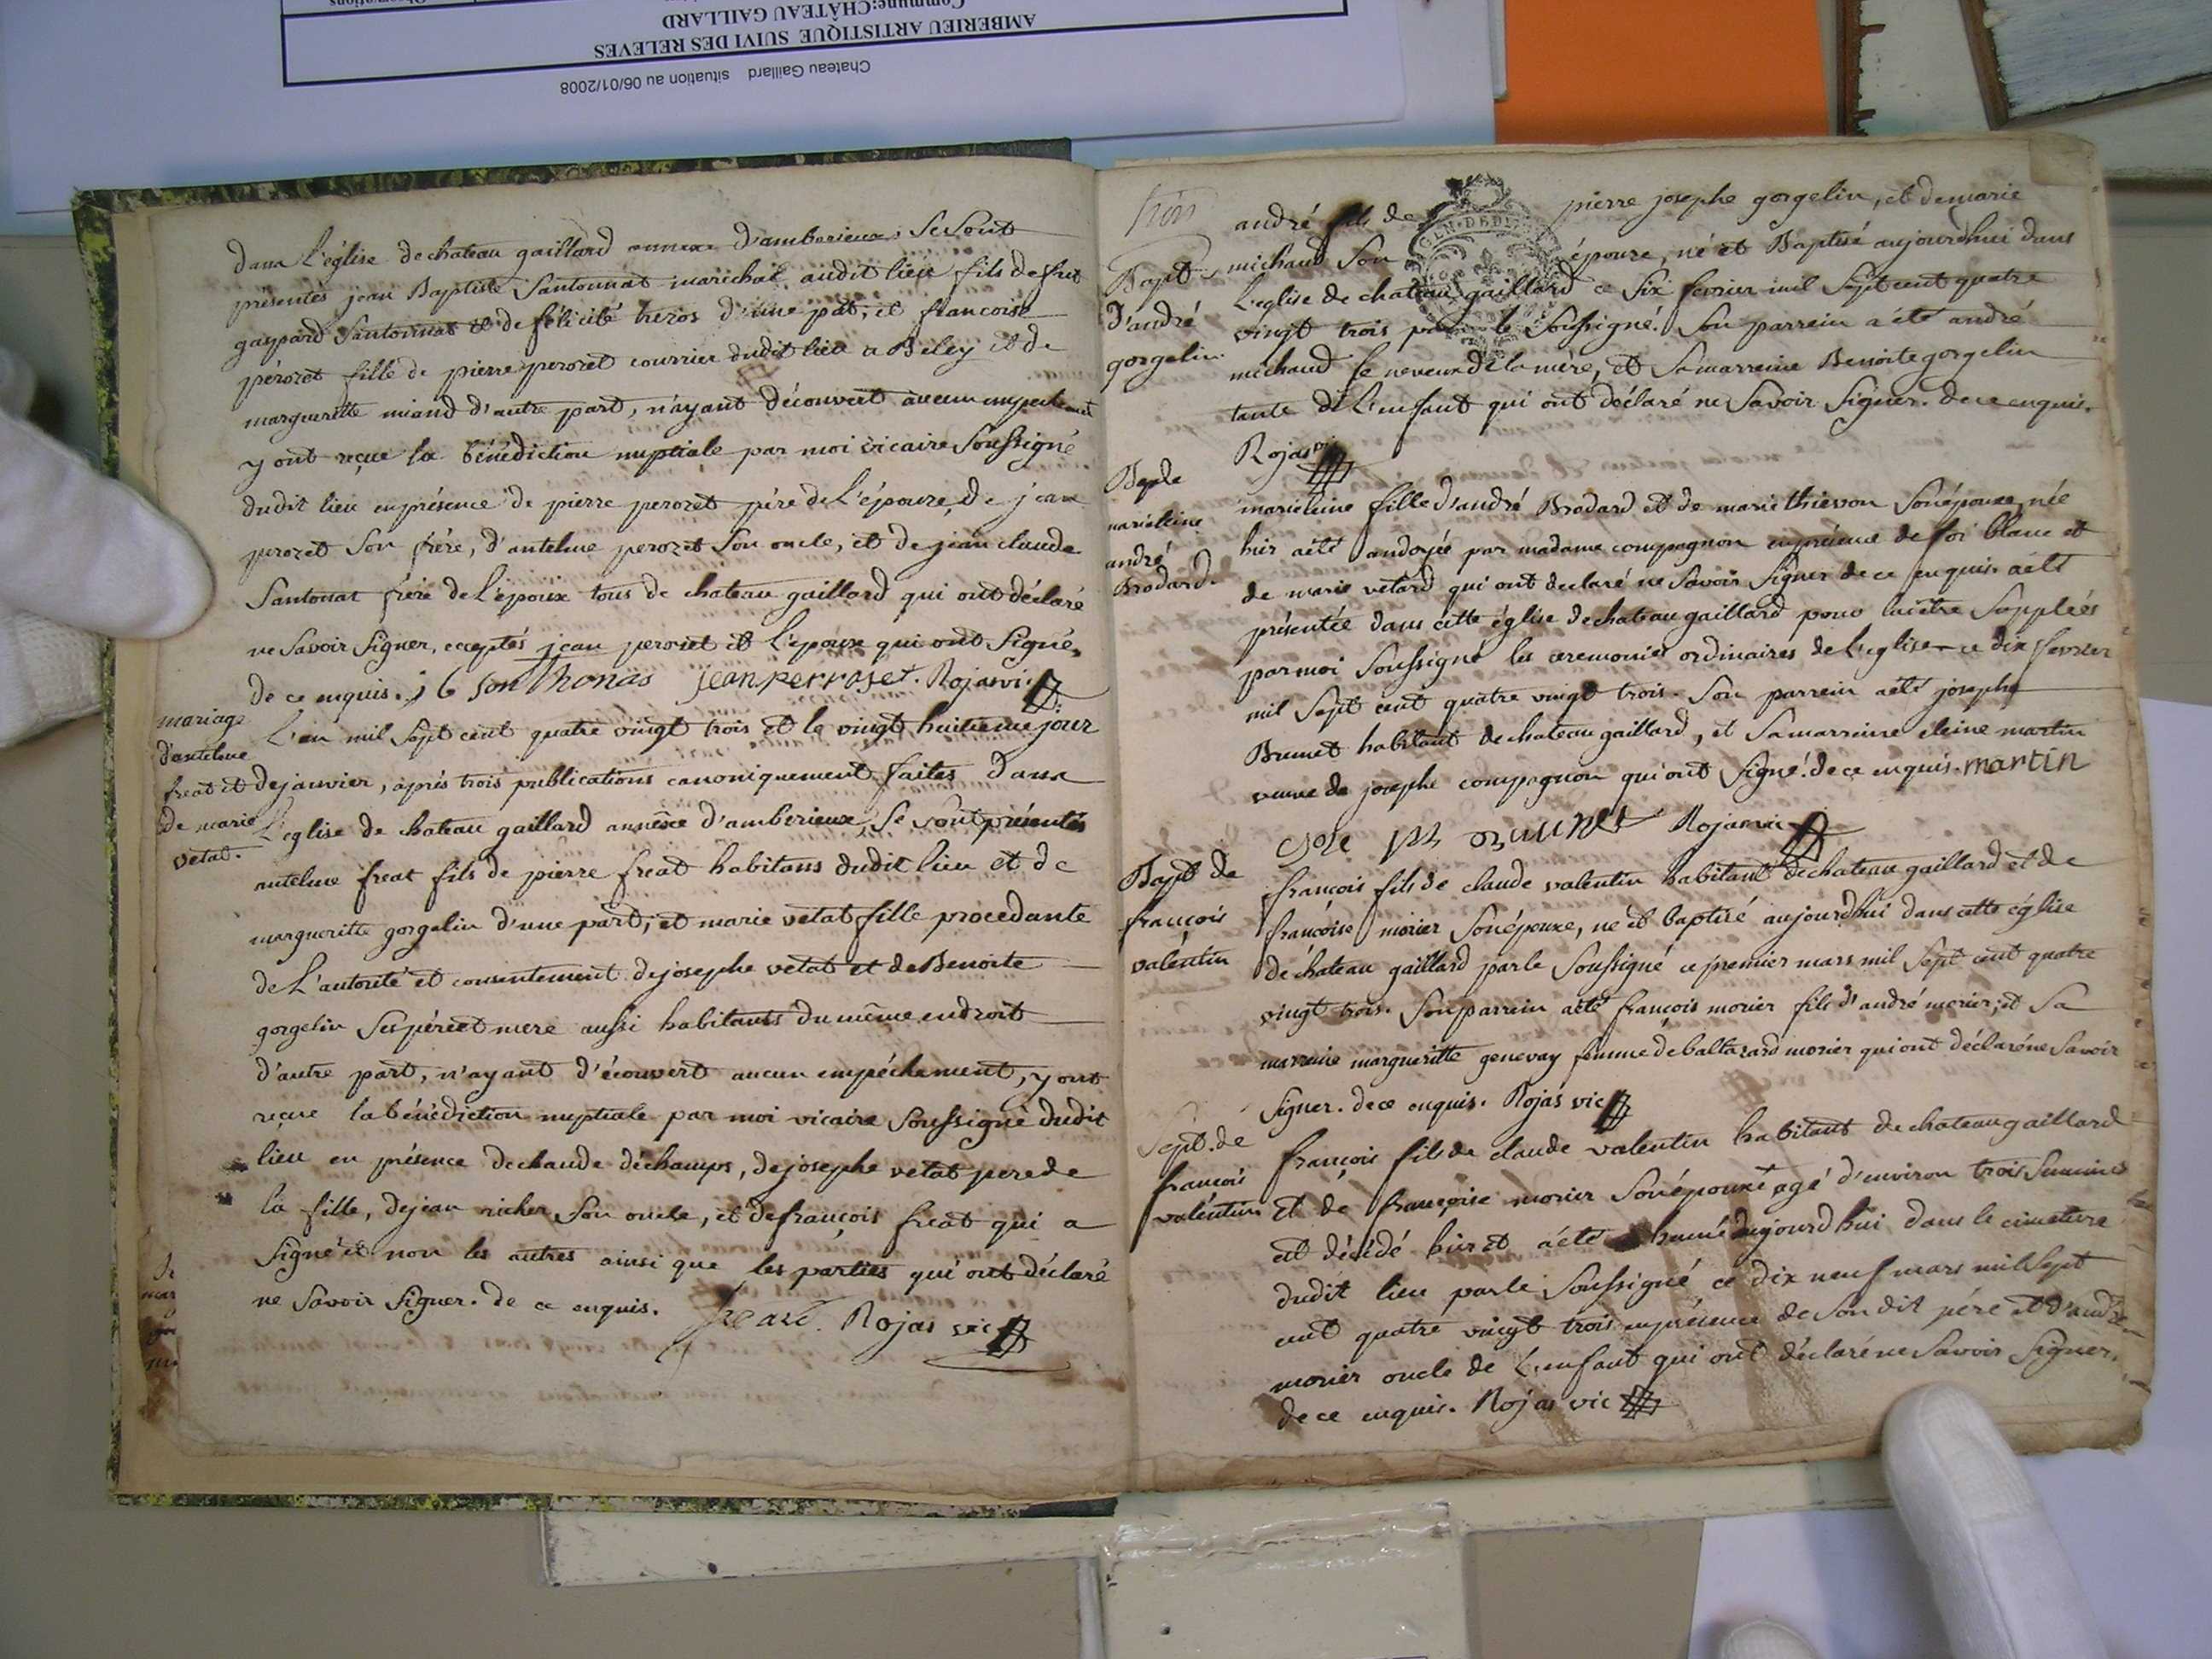 Chateau Gaillard situation au 06/01/2008
AMBERIEU ARTISTIQUE SUIVI DES RELEVES
Commune:CHÂTEAU GAILLARD
Observations
dans L'église de chateau gaillard annexe d'amberieux, Se Sont
présentés jean Baptiste Santonnat maréchal audit lieu fils de fut
gaspard Santonnat et de félicité d'une pât, et francoise
pérozet fille de pierre perozet courrier dudit lieu a Beley et de
margueritte miand d'autre part, n'ayant découvert aucun empechement
y ont reçue la bénédiction nuptiale par moi vicaire Soussigné
dudit lieu en présence de pierre perozet père de L'épouse, de jean
perozet Son frére, d'antelme perozet Son oncle, et de jean claude
Santonat frére de L'époux tous de chateau gaillard qui ont déclaré
ne Savoir Signer, eceptés jean perozet et L'époux qui ont Signé,
de ce enquis. j b Sonthonas jean perroset. Rojas vi
mariage
d'antelme
freat et
de marie
vetat.
L'an mil Sept cent quatre vingt trois et le vingt huitieme jour
de janvier, aprés trois publications canoniquement faites dans
L'eglise de chateau gaillard annexe d'amberieux, Se Sont présentés
antelme freat fils de pierre freat habitans dudit lieu et de
margueritte gorgelin d'une part, et marie vetat fille procedante
de L'autorité et consentement de josephe vetat et de Benoite
gorgelin Ses pére et mere aussi habitants du même endroit
d'autre part, n'ayant d'écouvert aucun empéchement, y ont
reçue la bénédiction nuptiale par moi vicaire Soussigné dudit
lieu en présence de claude déchamps, de josephe vetat pere de
la fille, de jean richer Son oncle, et de françois freat qui a
Signé et non les autres ainsi que les parties qui ont déclaré
ne Savoir Signer. de ce enquis. freat. Rojas vic
trois
Bapt
d'andré
gorgelin.
andré fils de pierre josephe gorgelin, et de marie
michaud Son épouse, né et Baptisé aujourdhui dans
L'eglise de chateau gaillard ce Six fevrier mil Sept cent quatre
vingt trois par le Soussigné. Son parrein a été andré
michaud le neveux de la mère, et Sa marreine Benoite gorgelin
tante de L'enfant qui ont déclaré ne Savoir Signer. de ce enquis.
Rojas vic
Bap de
marieleine
andré
Brodard.
marieleine fille d'andré Brodard et de marie thievon Son épouse, née
hier a été andoyée par madame compagnon en présence de blanc et
de marie vetard qui ont declaré ne Savoir Signer de ce enquis. a été
présentée dans cette église de chateau gaillard pour lui être Supplées
par moi Soussigné les ceremonies ordinaires de L'eglise ce dix fevrier
mil Sept cent quatre vingt trois. Son parrein a été josephe
Brunet habitant de chateau gaillard, et Sa marreine éleine martin
veuve de josephe compagnon qui ont Signé. de ce enquis. martin
Brunet Rojas vic
Bapt de
françois
valentin
françois fils de claude valentin habitant de chateau gaillard et de
françoise morier Son épouse, né et baptisé aujourdhui dans cette église
de chateau gaillard par le Soussigné ce premier mars mil Sept cent quatre
vingt trois. Son parrein a été françois morier fils d'andré morier; et Sa
marreine margueritte genevay femme de baltazard morier qui ont déclaré ne Savoir
Signer. de ce enquis. Rojas vic
Sept. de
francois
valentin
françois fils de claude valentin habitant de chateau gaillard
et de françoise morier Son épouse agé d'environ trois Semaines
est décédé hier et a été inhumé aujourdhui dans le cimetiere
dudit lieu par le Soussigné, ce dix neuf mars mil Sept
cent quatre vingt trois en présence de Son dit pére et d'andré
morier oncle de L'enfant qui ont déclaré ne Savoir Signer.
de ce enquis. Rojas vic